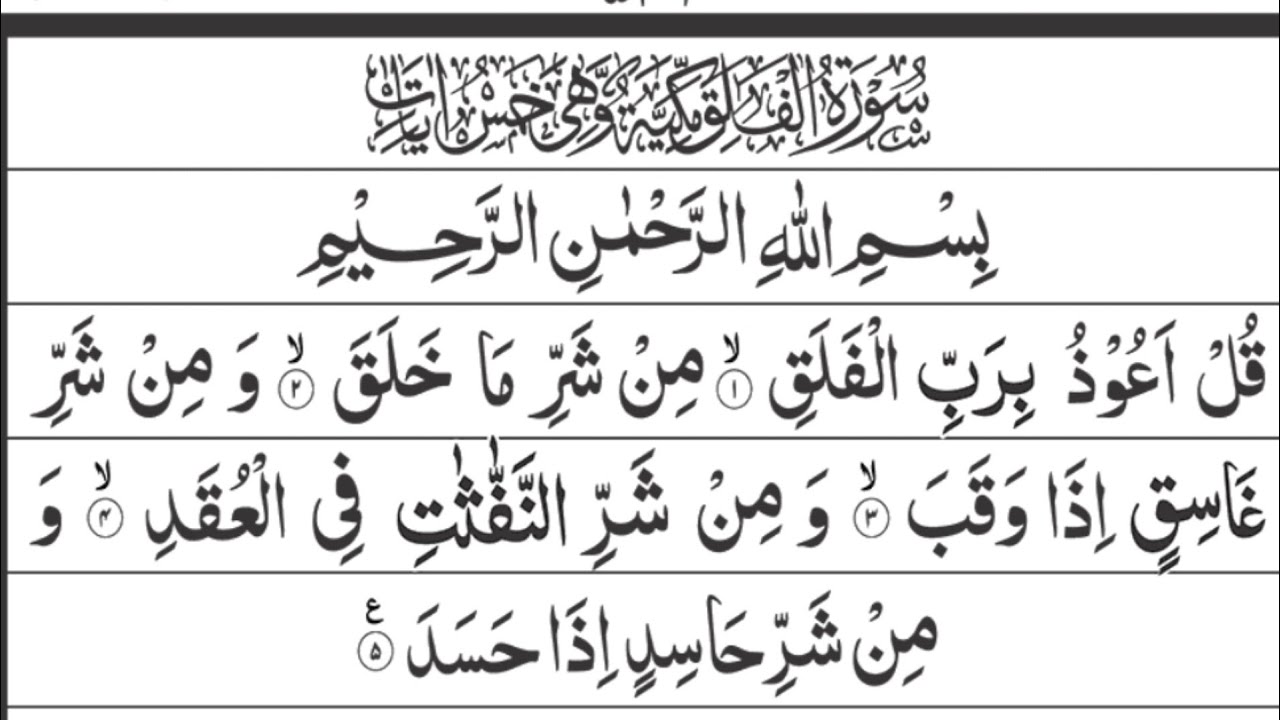 سُوْرَةُ الْفَلَقِ مَكِّيَّةٌ وَّهِيَ خَمْسُ اٰيَاتٍ
بِسْمِ اللّٰهِ الرَّحْمٰنِ الرَّحِيْمِ
قُلْ اَعُوْذُ بِرَبِّ الْفَلَقِ ۙ۱ مِنْ شَرِّ مَا خَلَقَ ۙ۲ وَ مِنْ شَرِّ
غَاسِقٍ اِذَا وَقَبَ ۙ۳ وَ مِنْ شَرِّ النَّفّٰثٰتِ فِی الْعُقَدِ ۙ۴ وَ
مِنْ شَرِّ حَاسِدٍ اِذَا حَسَدَ ۵ ع